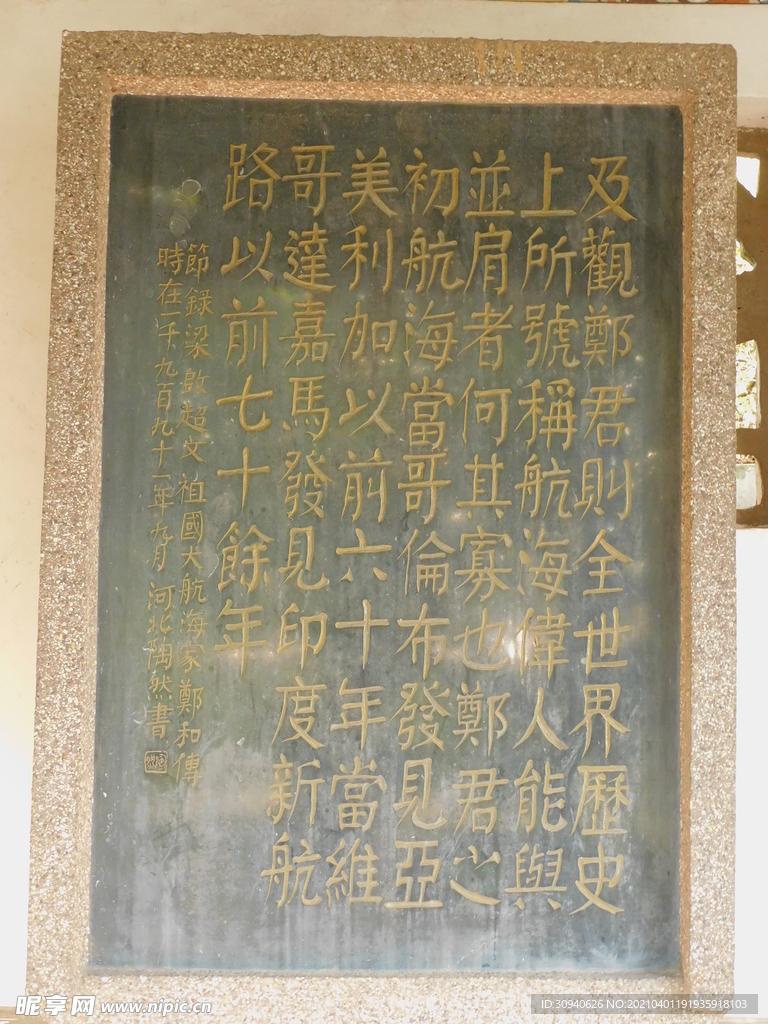 及觀鄭君則全世界歷史
上所號稱航海偉人能與
並肩者何其寡也鄭君之
初航海當哥倫布發見亞
美利加以前六十年當維
哥達嘉馬發見印度新航
路以前七十餘年
節錄梁啟超文祖國大航海家鄭和傳
時在一千九百九十一年九月 河北陶然書
昵享网 www.nipic.cn
ID:30940626 NO:20210401191935918103